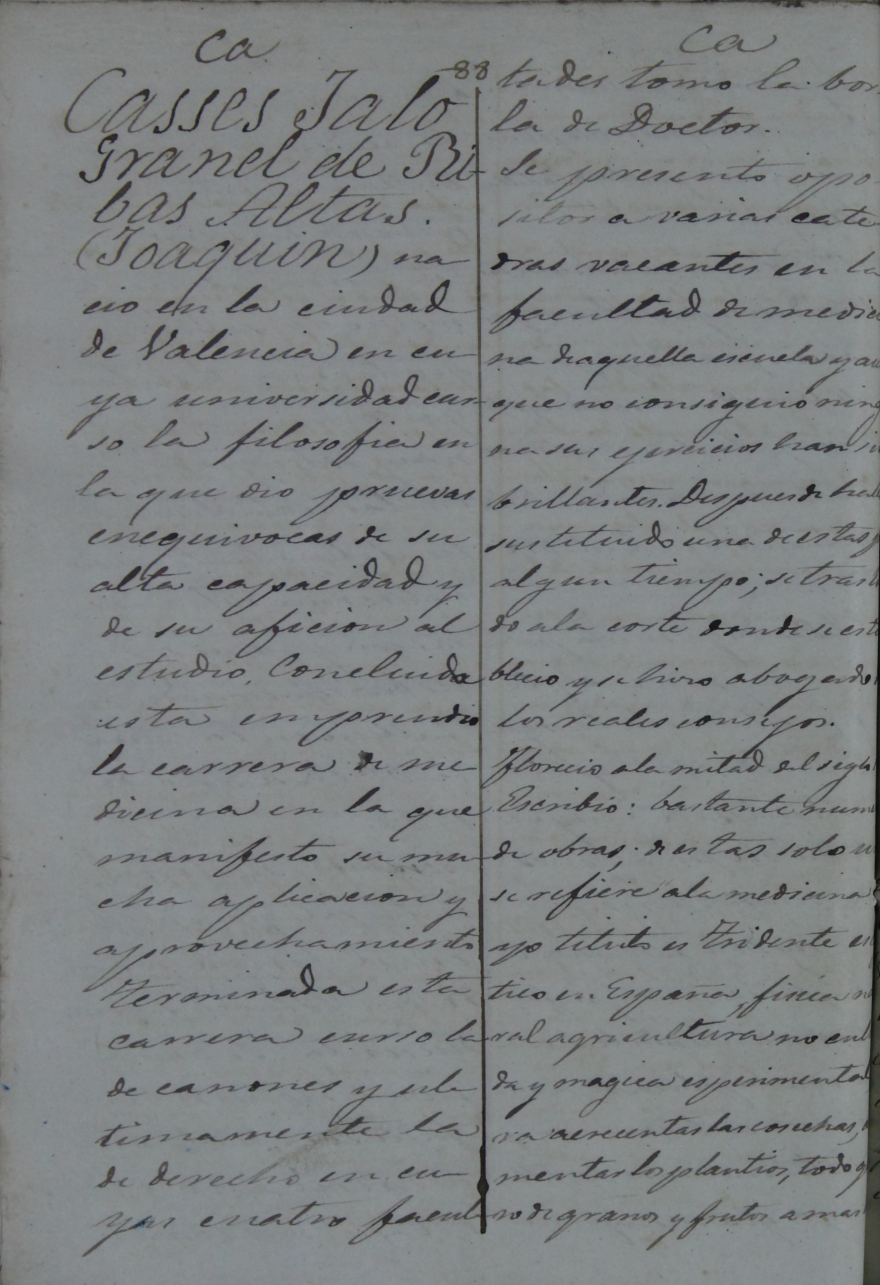 Ca
88
Casses Jalo
Granel de Ri-
bas Altas.
(Joaquin) na
cio en la ciudad
de Valencia en cu
ya universidad cur-
so la filosofia en
la que dio pruevas
enequivocas de su
alta capacidad y
de su aficion al
estudio. Concluida
esta emprendio
la carrera de me
dicina en la que
manifesto su mu
cha aplicacion y
aprovechamiento
Terminada esta
carrera curso la
de canones y ul
timamente la
de derecho en cu
yas cuatro facul
Ca
tades tomo la bor
la de Doctor.
Se presento opo-
sitor a varias cate
dras vacantes en la
facultad de medici
na de aquella escuela y au
que no consiguio ning
na sus ejercicios han si
brillantes. Despues de ha
sustituido una de estas p
algun tiempo; se tras
do a la corte donde se est
blecio y se hizo abogado
los reales consejos.
Florecio a la mitad del siglo
Escribio: bastante num
de obras; de estas solo u
se refiere a la medicina
yo titulo es Tridente
tico en España, fisica n
ral agricultura no cul
da y magica esperimenta
ra acrecentar las cosechas,
mentar los plantios, todo g
ro de granos y frutos a mas